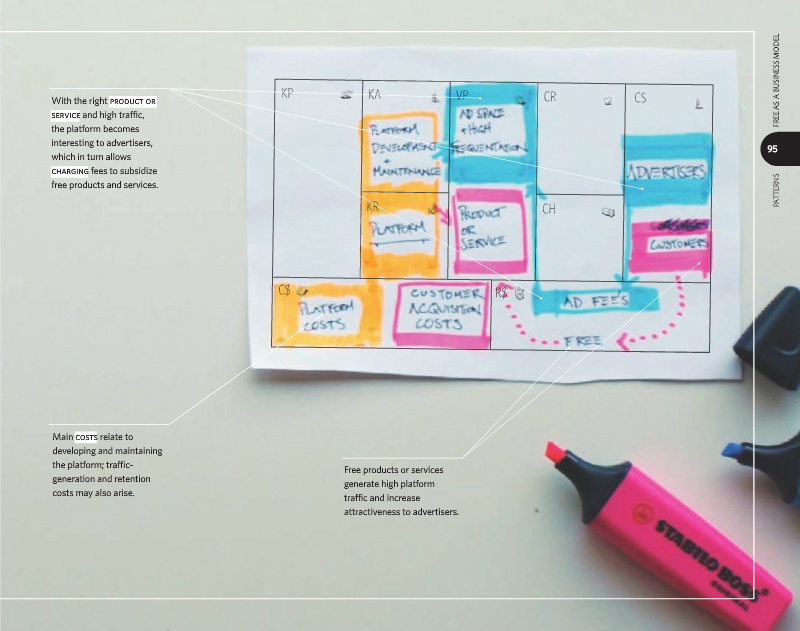 With the right PRODUCT OR
SERVICE and high traffic,
the platform becomes
interesting to advertisers,
which in turn allows
CHARGING fees to subsidize
free products and services.
KP
KA
VP
CR
CS
PLATFORM
DEVELOPMENT
+
MAINTENANCE
AD SPACE
+ HIGH
FREQUENTATION
ADVERTISERS
KR
PLATFORM
PRODUCT
OR
SERVICE
CH
CUSTOMERS
C$
PLATFORM
COSTS
CUSTOMER
ACQUISITION
COSTS
R$
AD FEES
FREE
Main COSTS relate to
developing and maintaining
the platform; traffic-
generation and retention
costs may also arise.
Free products or services
generate high platform
traffic and increase
attractiveness to advertisers.
FREE AS A BUSINESS MODEL
95
PATTERNS
STABILO BOSS
ORIGINAL